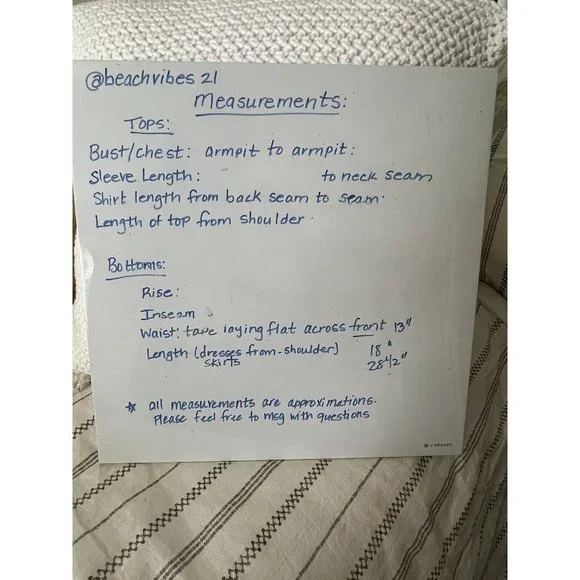 @beachvibes 21
Measurements:
TOPS:
Bust/chest: armpit to armpit:
Sleeve Length: to neck seam
Shirt length from back seam to seam.
Length of top from shoulder.
Bottoms:
Rise:
Inseam
Waist: tape laying flat across front 13"
Length (dresses from-shoulder) 18"
skirts 28 1/2"
* all measurements are approximations.
Please feel free to msg with questions
U BRANDS